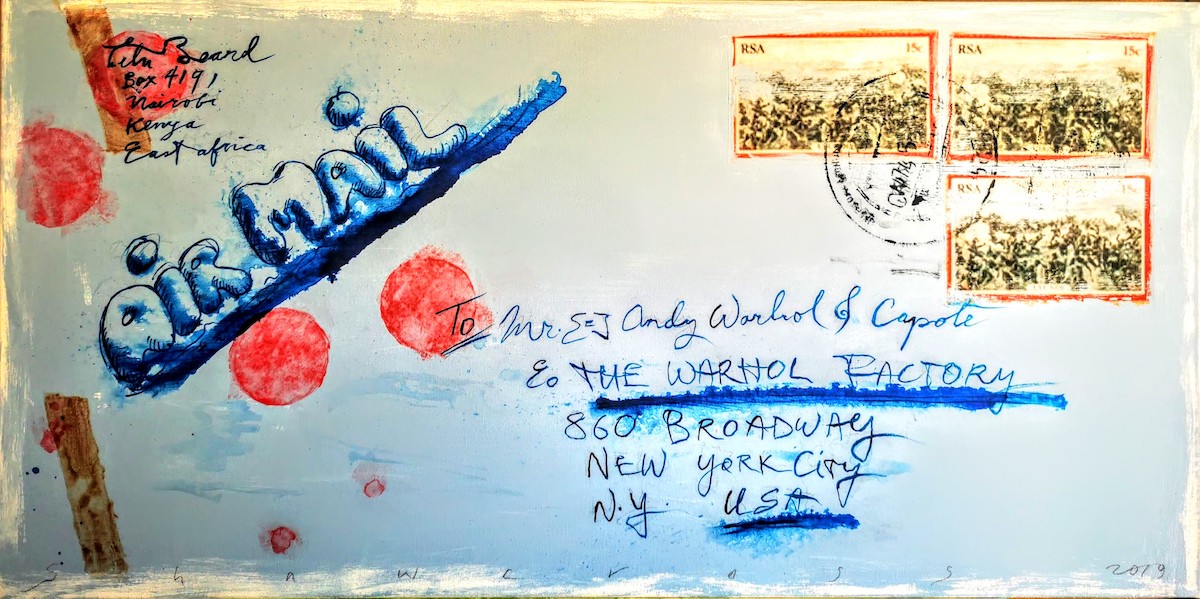 Beard
Box 4191
Nairobi
Kenya
East africa
AiR MAiL
RSA 15c
RSA 15c
RSA 15c
To Mr. Andy Warhol & Capote
THE WARHOL FACTORY
860 BROADWAY
NEW YORK City
N.Y. USA
S h a w c r o s s 2019